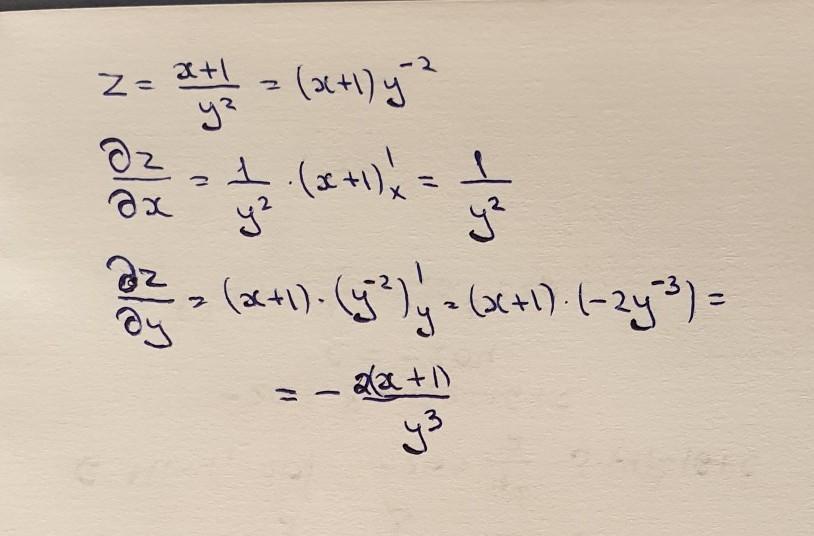 z = \frac{x+1}{y^2} = (x+1) y^{-2}
\frac{∂z}{∂x} = \frac{1}{y^2} · (x+1)'_x = \frac{1}{y^2}
\frac{∂z}{∂y} = (x+1) · (y^{-2})'_y = (x+1) · (-2y^{-3}) =
= - \frac{2(x+1)}{y^3}